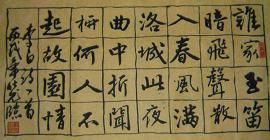 誰家玉笛
暗飛聲散
入春風滿
洛城此夜
曲中折聞
柳何人不
起故園情
李白詩一首
丙戌年